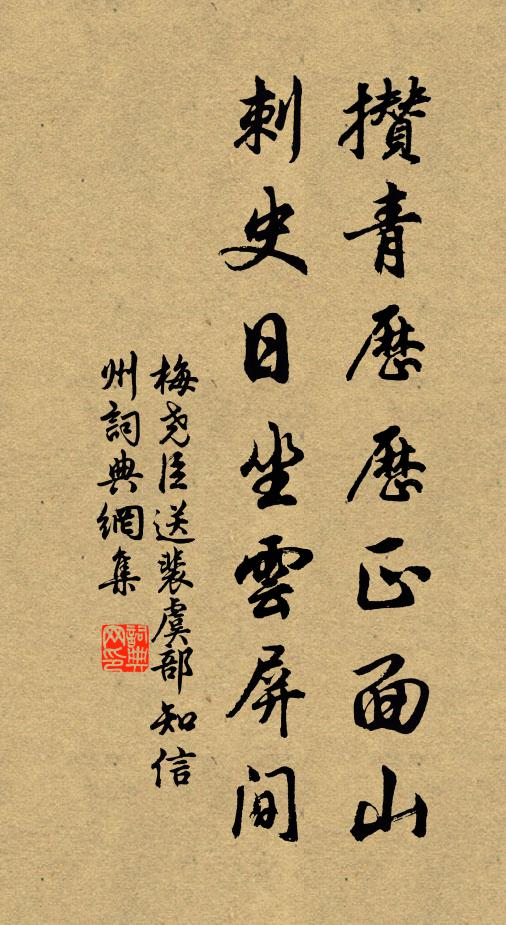 攢青歷歷正面山
刺史日坐雲屏間
梅堯臣送裴虞部知信
州詞典網集
詞典网印